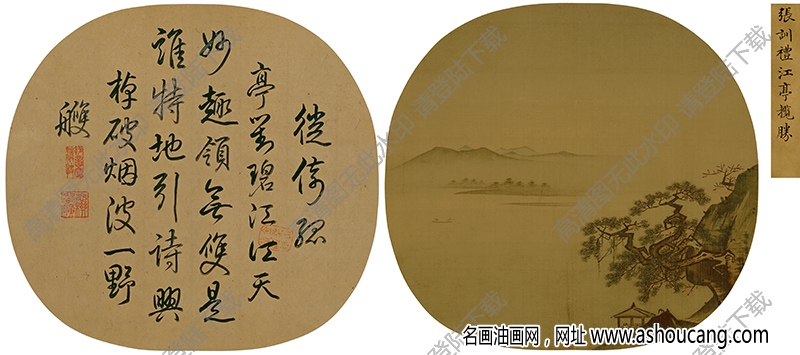 徙倚孤
亭對碧江江天
妙趣領無雙是
誰特地引詩興
棹破烟波一野
艭
張訓禮江亭攬勝
高清图无此水印 请登陆下载
名画油画网，网址 www.ashoucang.com